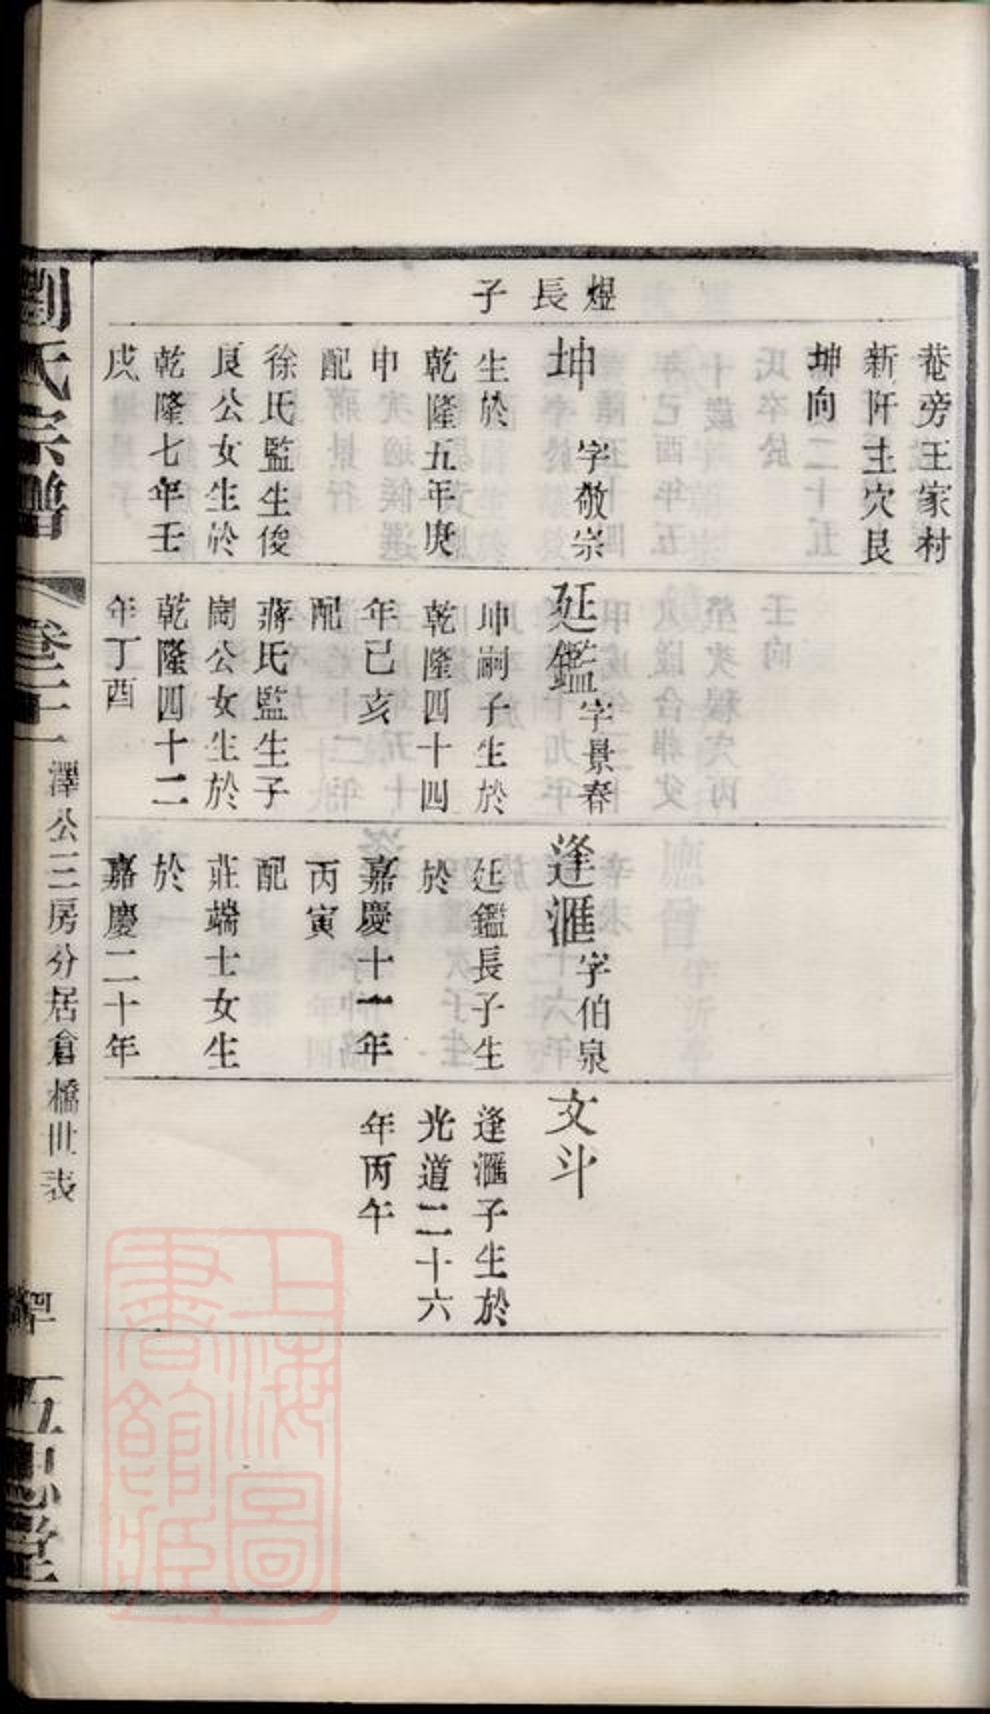 煜長子
菴旁王家村
新阡主穴艮
坤向
坤 字敬宗
生於
乾隆五年庚
申
配
徐氏監生俊
良公女生於
乾隆七年壬
戌
延鑑字景春
坤嗣子生於
乾隆四十四
年己亥
配
蔣氏監生子
閎公女生於
乾隆四十二
年丁酉
逢滙字伯泉
延鑑長子生
於
嘉慶十一年
丙寅
配
莊端士女生
於
嘉慶二十年
文斗
逢滙子生於
光道二十六
年丙午
劉氏宗譜
卷二十二
澤公三房分居倉橋世表
五思堂
上海圖
書館藏